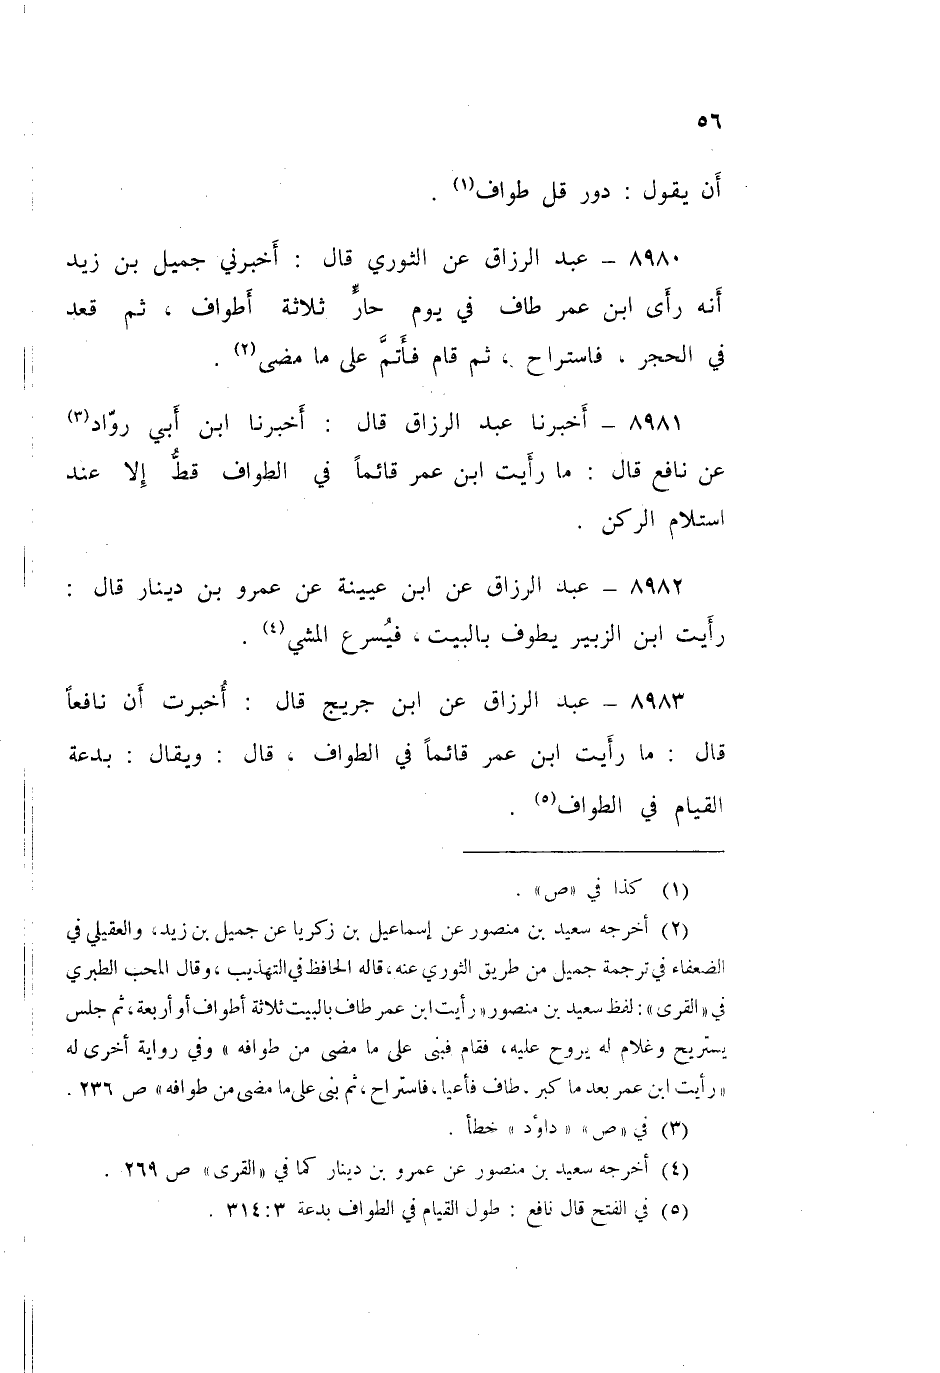 ٥٦
أَن يقول : دور قل طواف(١) .
٨٩٨٠ – عبد الرزاق عن الثوري قال : أَخبرني جميل بن زيد
أَنه رأَى ابن عمر طاف في يوم حارٍّ ثلاثة أَطواف ، ثم قعد
في الحجر ، فاستراح ، ثم قام فأَتمَّ على ما مضى(٢) .
٨٩٨١ – أَخبرنا عبد الرزاق قال : أَخبرنا ابن أَبي روّاد(٣)
عن نافع قال : ما رأَيت ابن عمر قائماً في الطواف قطُّ إِلا عند
استلام الركن .
٨٩٨٢ – عبد الرزاق عن ابن عيينة عن عمرو بن دينار قال :
رأَيت ابن الزبير يطوف بالبيت ، فيُسرع المشي(٤) .
٨٩٨٣ – عبد الرزاق عن ابن جريج قال : أُخبرت أَن نافعاً
قال : ما رأَيت ابن عمر قائماً في الطواف ، قال : ويقال : بدعة
القيام في الطواف(٥) .
(١) كذا في «ص» .
(٢) أخرجه سعيد بن منصور عن إسماعيل بن زكريا عن جميل بن زيد، والعقيلي في
الضعفاء في ترجمة جميل من طريق الثوري عنه، قاله الحافظ في التهذيب ، وقال المحب الطبري
في «القرى» : لفظ سعيد بن منصور «رأيت ابن عمر طاف بالبيت ثلاثة أطواف أو أربعة، ثم جلس
يستريح وغلام له يروح عليه، فقام فبنى على ما مضى من طوافه » وفي رواية أخرى له
«رأيت ابن عمر بعد ما كبر . طاف فأعيا، فاستراح ، ثم بنى على ما مضى من طوافه» ص ٢٣٦ .
(٣) في «ص» « داوٗد » خطأ .
(٤) أخرجه سعيد بن منصور عن عمرو بن دينار كما في «القرى» ص ٢٦٩ .
(٥) في الفتح قال نافع : طول القيام في الطواف بدعة ٣١٤:٣ .